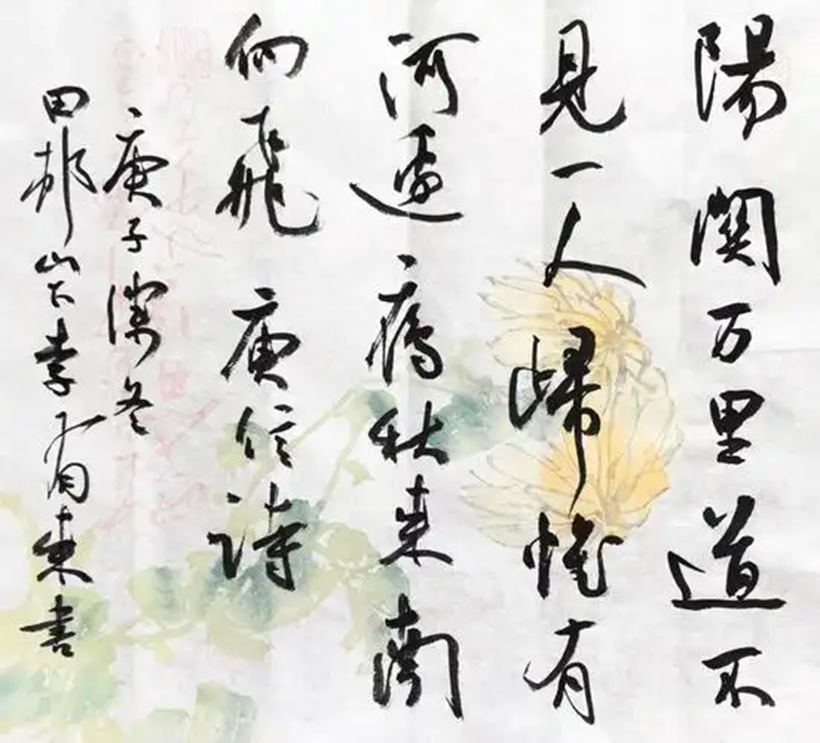 陽関万里道不
見一人歸惟有
河邊鴈秋来南
向飛 庾信詩
庚子深冬
田邨山下李有来書